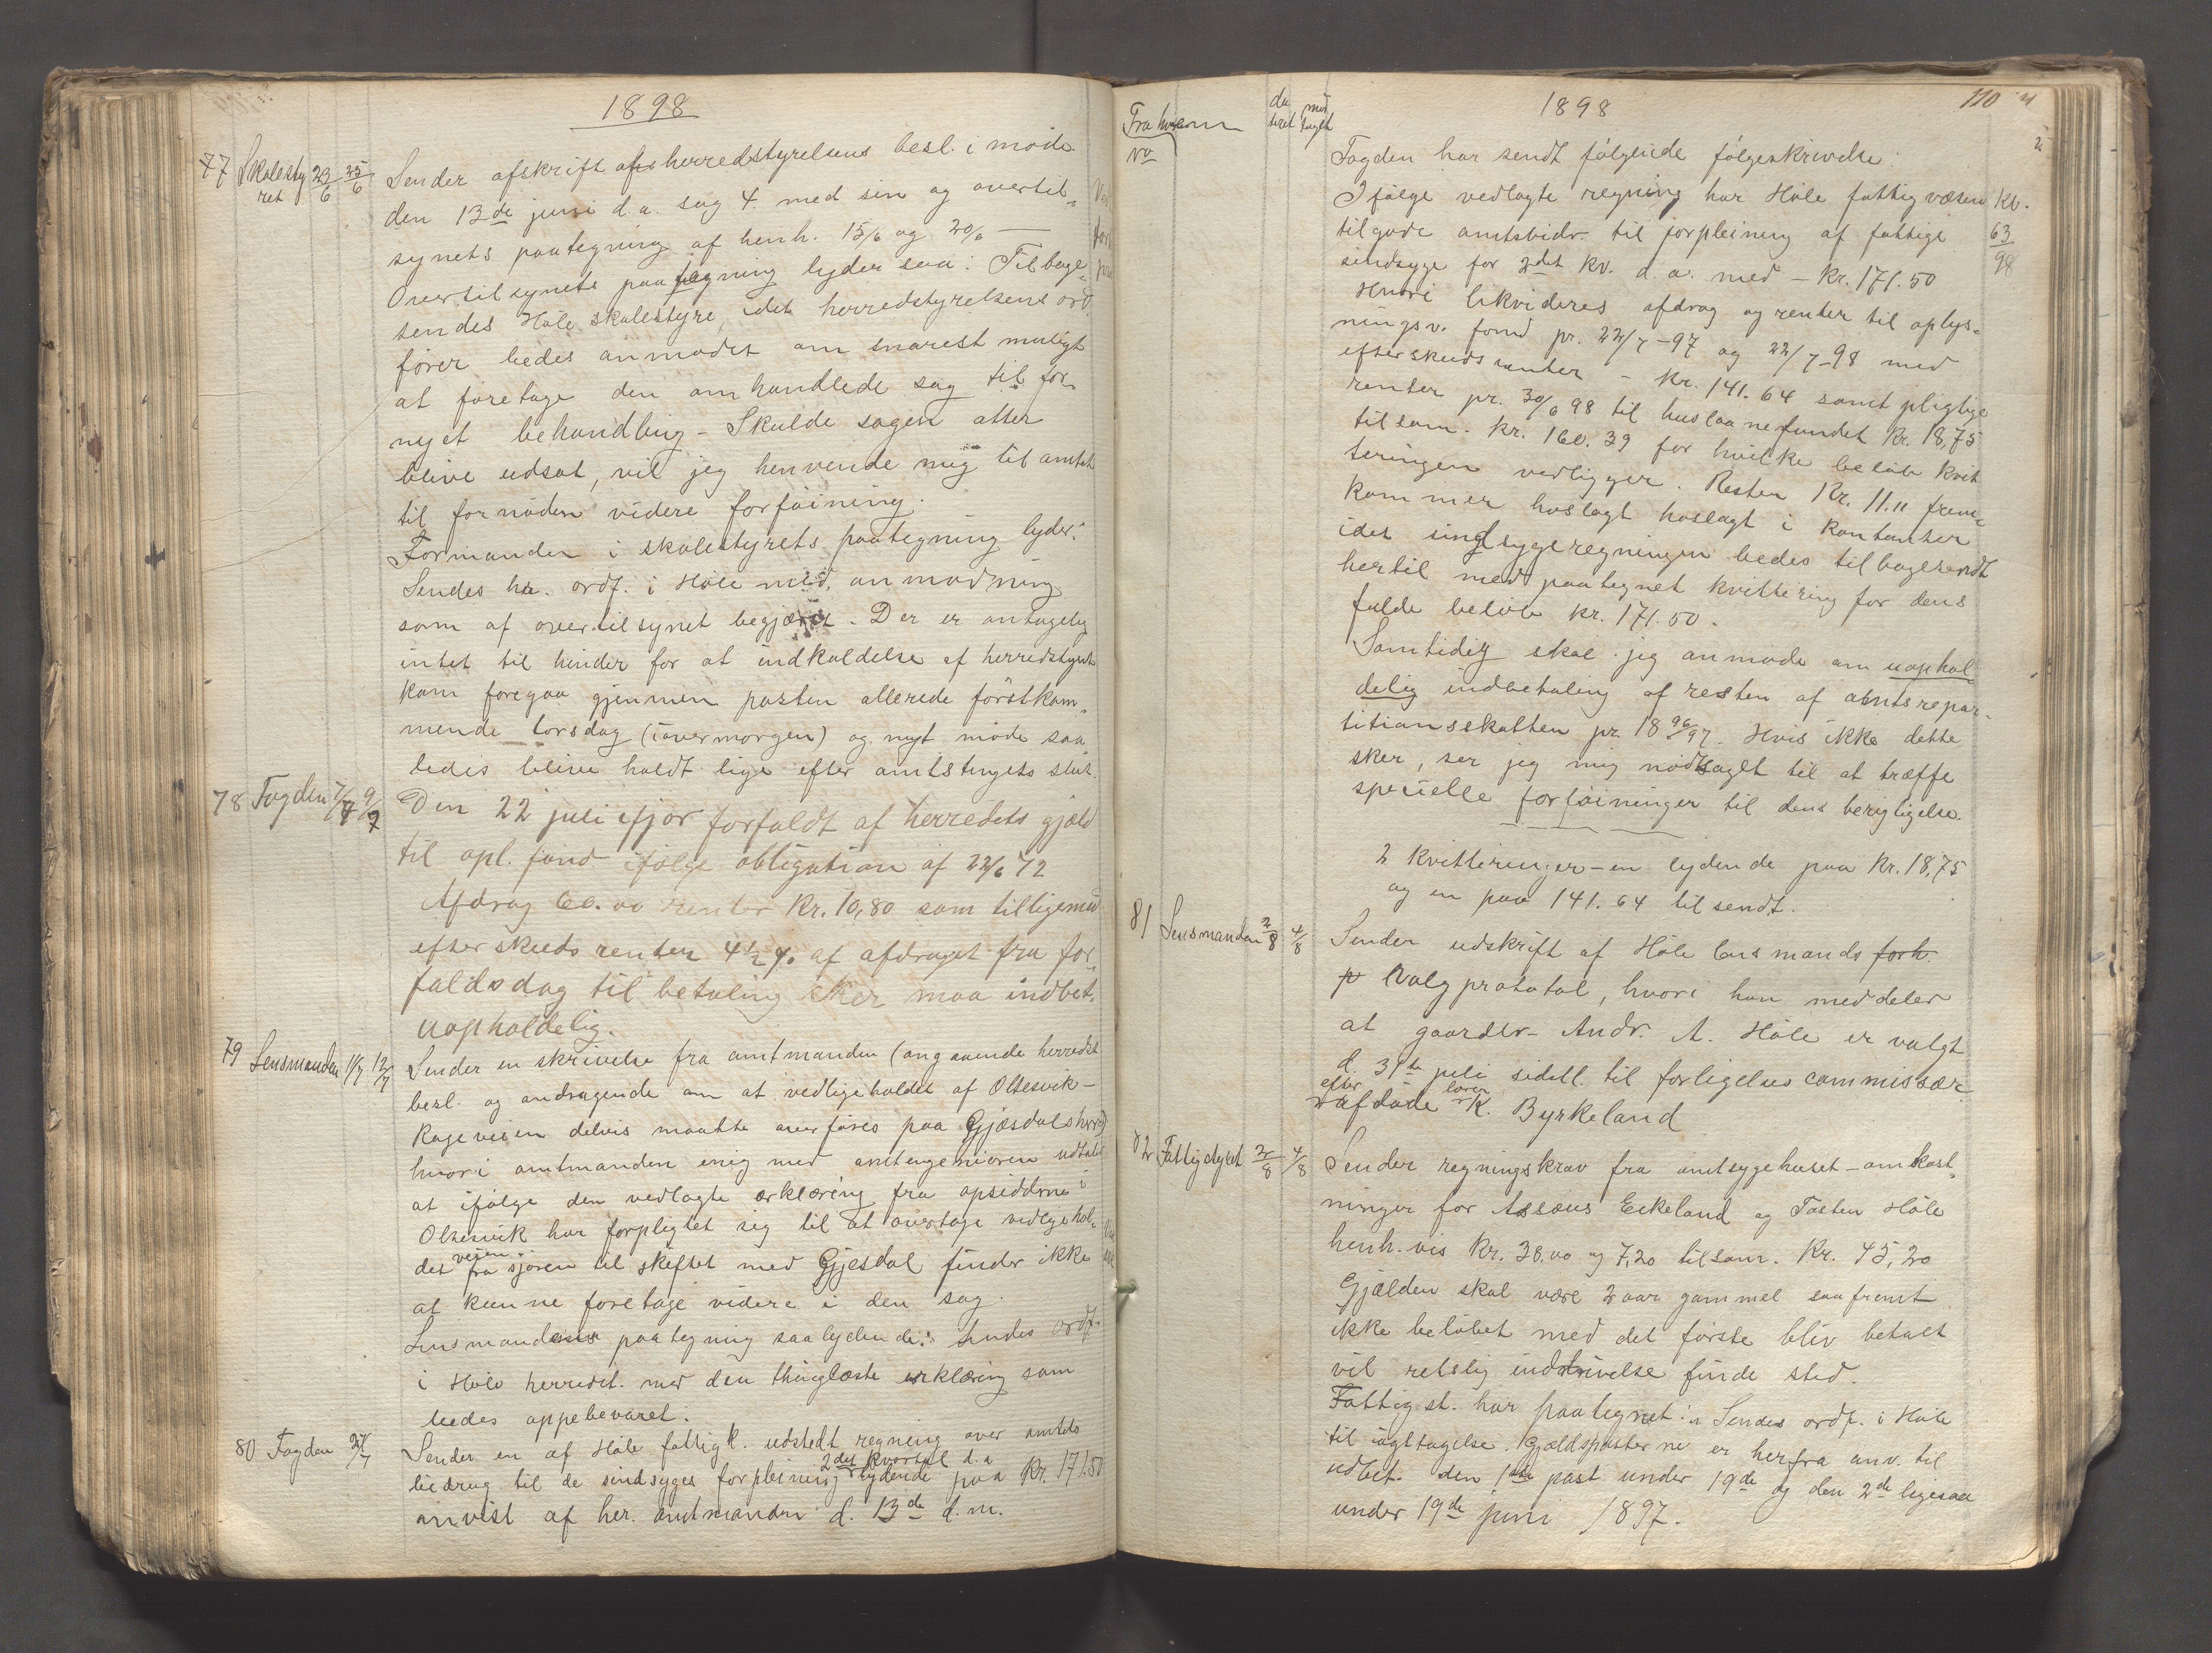 1898
77 Skolesty 23/6 25/6 Sender afskrift af herredstyrelsens besl. i møde
ret
den 13de juni d.a. sag 4. med sin og overtil-
synets paategning af henh. 15/6 og 20/6 —
Overtilsynets paategning lyder saa: Tilbage-
sendes Höle skolestyre, idet herredstyrelsens ord-
förer bedes anmodet om snarest muligt
at foretage den omhandlede sag til for-
nyet behandling - Skulde sagen atter
blive udsat, vil jeg henvende mig til amtet
til fornöden videre forföining.
Formanden i skolestyrets paategning lyder:
Sendes hr. ordf. i Höle med anmodning
som af overtilsynet begjæret. Der er antagelig
intet til hinder for at indkaldelse af herredstyret
kan foregaa gjennem posten allerede förstkom-
mende torsdag (iovermorgen) og nyt möde saa-
ledes blive holdt lige efter amtstingets slut.
78 Fogden 7/7 9/7 Den 22 juli ifjor forfaldt af herredets gjæld
til opl. fond ifölge obligation af 22/6 72
Afdrag 60.00 renter Kr. 10,80 som tilligemed
efterskuds renter 4½ % af afdraget fra for-
faldsdag til betaling sker maa indbet.
uopholdelig.
79 Lensmanden 11/7 12/7 Sender en skrivelse fra amtmanden (angaaende herredst.
besl. og andragende om at vedligeholdet af Oltesvik-
Rageveien delvis maatte overföres paa Gjæsdals herred)
hvori amtmanden enig med amtingeniören udtaler
at ifölge den vedlagte erklæring fra opsidderne i
Oltesvik har forpligtet sig til at overtage vedligehol-
det veien fra sjöen til skiftet med Gjesdal finder ikke
at kunne foretage videre i den sag.
Lensmandens paategning saalydende: Sendes ordf.
i Höle herredst. med den thinglæste erklæring som
bedes oppebevaret.
80 Fogden 27/7 Sender en af Höle fattigk. udstedt regning over amtets
2det kvartal d.a
bidrag til de sindsyges forpleining lydende paa Kr. 171.50
anvist af hr. amtmanden d. 13de d.m.
Fra hvem
No
da
teret
mod
taget
1898
110
Fogden har sendt fölgende fölgeskrivelse:
Ifölge vedlagte regning har Höle fattigvæsen
Kb.
63
98
tilgode amtsbidr. til forpleining af fattige
sindsyge for 2det kv. d.a. med - Kr. 171.50
Hvori likvideres afdrag og renter til oplys-
ningsv. fond pr. 22/7-97 og 22/7-98 med
efterskudsrenter - Kr. 141.64 samt pligtige
renter pr. 30/6 98 til huslaanefundet Kr. 18,75
tilsam. Kr. 160.39 for hvilke belöb kvit
teringen vedligger. Resten Kr. 11.11 frem-
kommer hoslagt hoslagt i kontanter
idet sindsygeregningen bedes tilbagesendt
hertil med paategnet kvittering for dens
fulde belöb Kr. 171.50.
Samtidig skal jeg anmode om uophol-
delig indbetaling af resten af amtsrepar-
titionsskatten pr. 1896/97. Hvis ikke dette
sker, ser jeg mig nödsaget til at træffe
specielle forföininger til dens berigtigelse.
2 Kvitteringer - en lydende paa Kr. 18,75
og en paa 141.64 tilsendt.
81 Lensmanden 2/8 4/8 Sender udskrift af Höle lensmands forh.
p valgprotokol, hvori han meddeler
at gaardbr. Andr. A. Höle er valgt
d. 31te juli sidstl. til forligelsescommissær
efter afdöde K. Byrkeland
82 Fattigstyret 2/8 4/8 Sender regningskrav fra amtsygehuset - omkost-
ninger for Assæus Eikeland og Tosten Höle
henh.vis Kr. 38.00 og 7,20 tilsam. Kr. 45,20
Gjælden skal være 2 aar gammel saafremt
ikke belöbet med det förste bliv betalt
vil retslig inddrivelse finde sted.
Fattigst. har paategnet: Sendes ordf. i Höle
til iagttagelse. Gjældsposterne er herfra anv. til
udbet. den 1ste post under 19de og den 2de ligesaa
under 19de juni 1897.